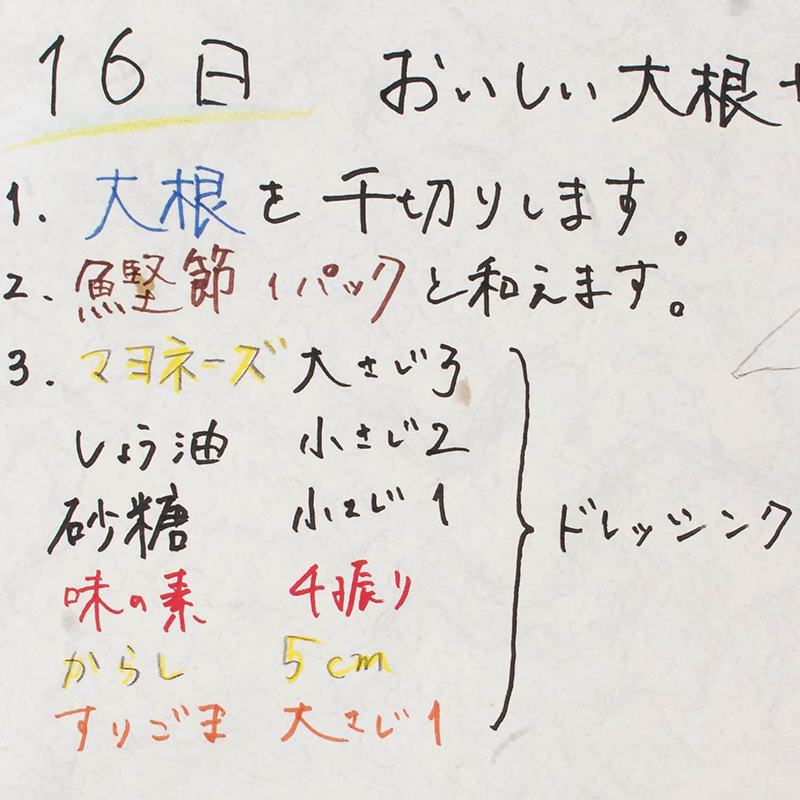 16日 おいしい大根サ
1. 大根を千切りします。
2. 鰹節1パックと和えます。
3. マヨネーズ 大さじ3
しょう油 小さじ2
砂糖 小さじ1
ドレッシング
味の素 4振り
からし 5cm
すりごま 大さじ1